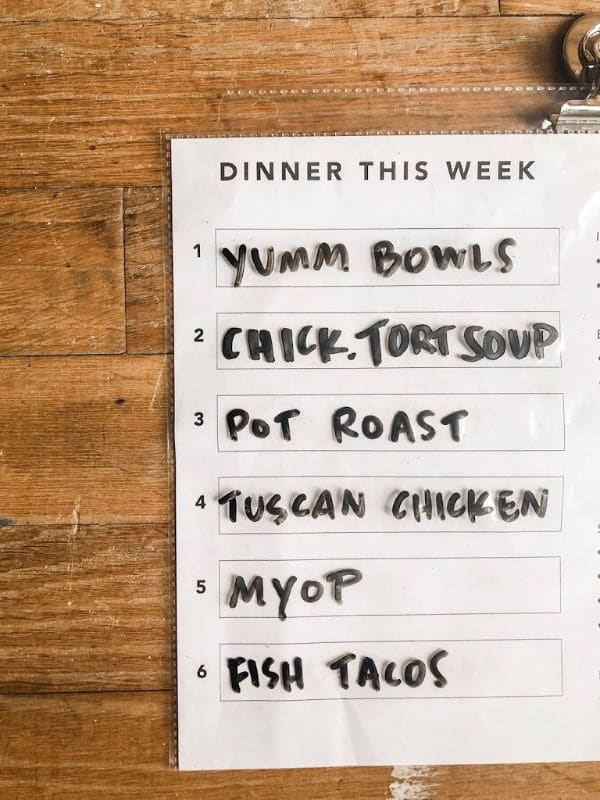 DINNER THIS WEEK
1 YUMM BOWLS
2 CHICK. TORT SOUP
3 POT ROAST
4 TUSCAN CHICKEN
5 MYOP
6 FISH TACOS